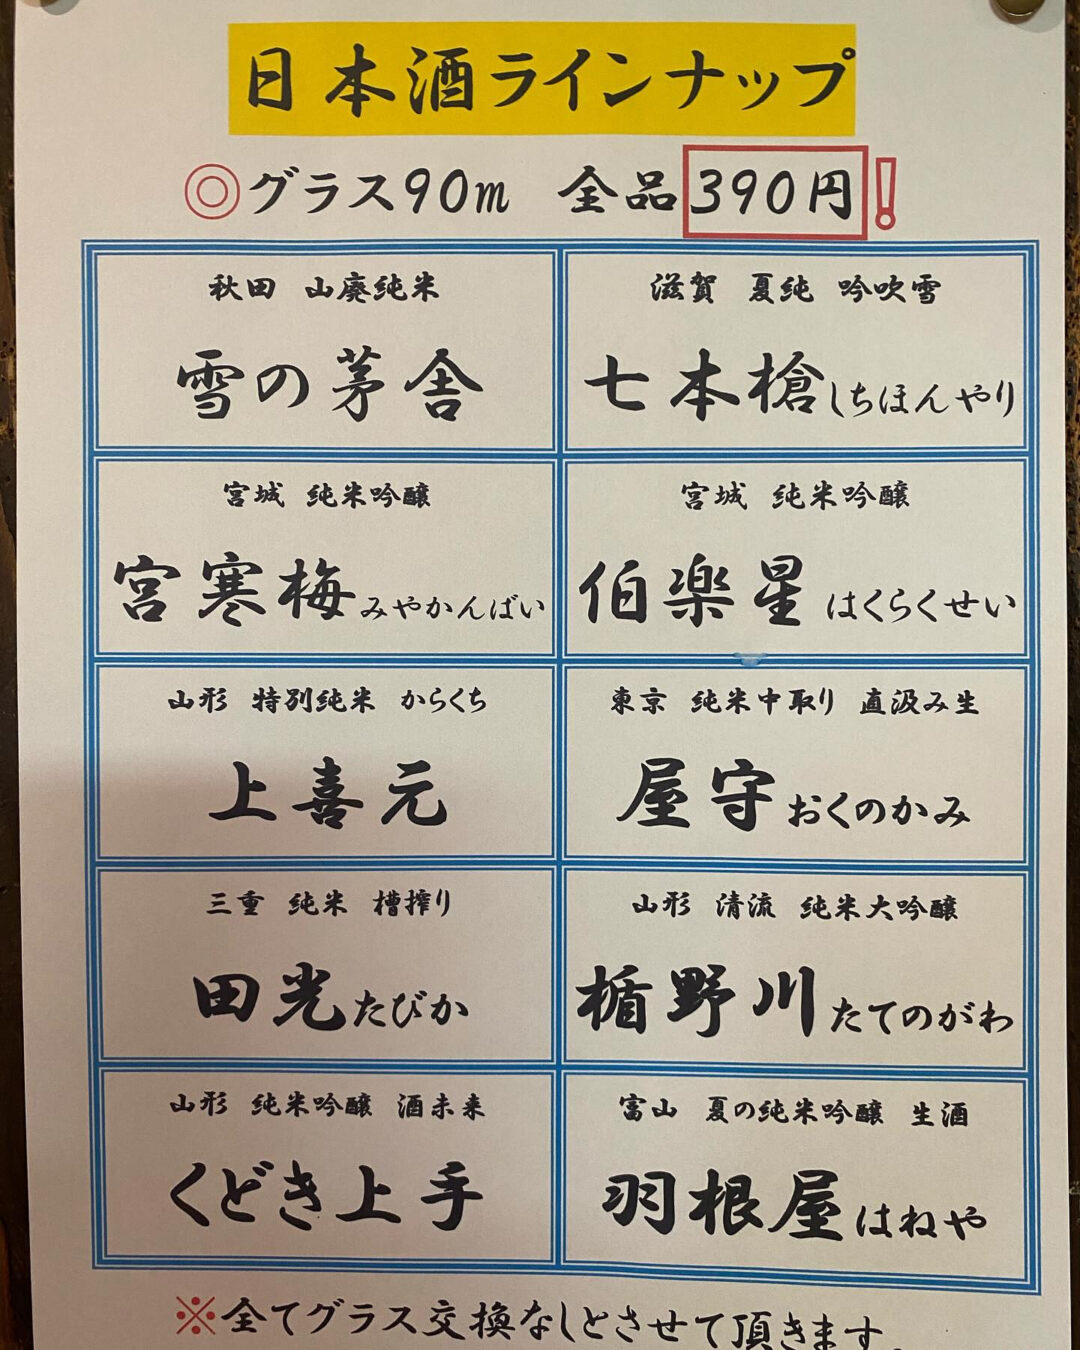 日本酒ラインナップ
◎グラス90m 全品390円!
秋田 山廃純米
雪の茅舎
滋賀 夏純 吟吹雪
七本槍しちほんやり
宮城 純米吟醸
宮寒梅みやかんばい
宮城 純米吟醸
伯楽星はくらくせい
山形 特別純米 からくち
上喜元
東京 純米中取り 直汲み生
屋守おくのかみ
三重 純米 槽搾り
田光たびか
山形 清流 純米大吟醸
楯野川たてのがわ
山形 純米吟醸 酒未来
くどき上手
富山 夏の純米吟醸 生酒
羽根屋はねや
※全てグラス交換なしとさせて頂きます。